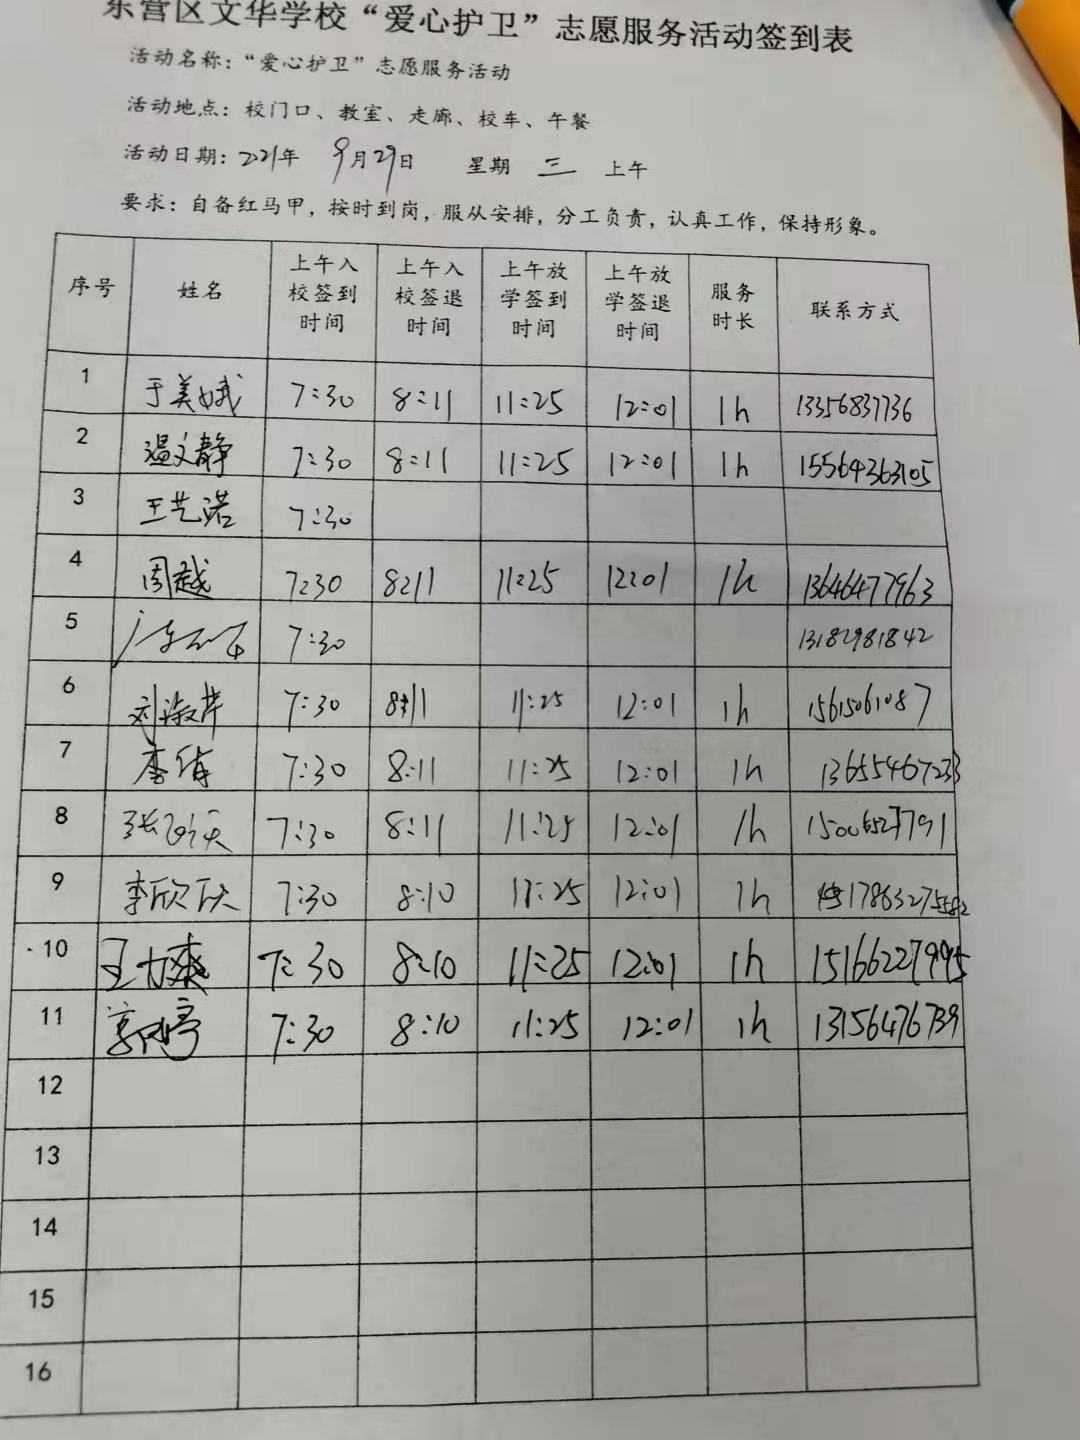 东营区文华学校“爱心护卫”志愿服务活动签到表
活动名称：“爱心护卫”志愿服务活动
活动地点：校门口、教室、走廊、校车、午餐
活动日期：2021年 9月29日 星期 三 上午
要求：自备红马甲，按时到岗，服从安排，分工负责，认真工作，保持形象。
序号 姓名 上午入校签到时间 上午入校签退时间 上午放学签到时间 上午放学签退时间 服务时长 联系方式
1 于美娥 7:30 8:11 11:25 12:01 1h 13356837736
2 温文静 7:30 8:11 11:25 12:01 1h 15564363105
3 王艺诺 7:30
4 周越 7:30 8:11 11:25 12:01 1h 13646477963
5 7:30 13182981842
6 刘淑芹 7:30 8:11 11:25 12:01 1h 15615061087
7 李倩 7:30 8:11 11:25 12:01 1h 13655467233
8 7:30 8:11 11:25 12:01 1h
9 李欣 7:30 8:10 11:25 12:01 1h 17863275582
10 7:30 8:10 11:25 12:01 1h 15166227995
11 郭婷 7:30 8:10 11:25 12:01 1h 13156476739
12
13
14
15
16